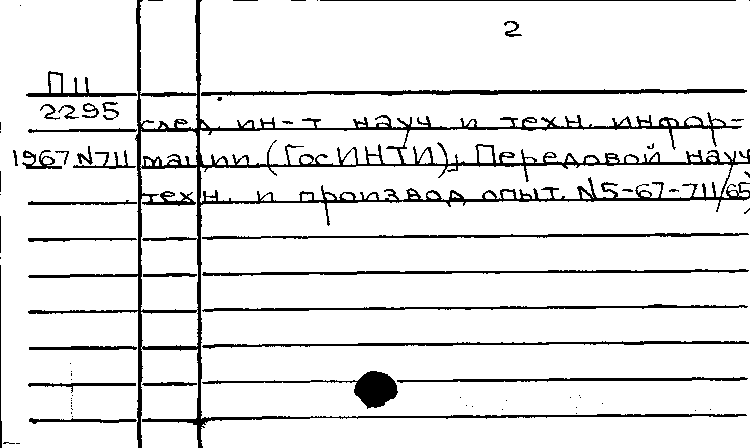 2
П 11
2295 след ин-т науч. и техн. инфор-
1967 N711 мации (ГосИНТИ), Передовой науч
техн. и производ опыт. N5-67-711/65)